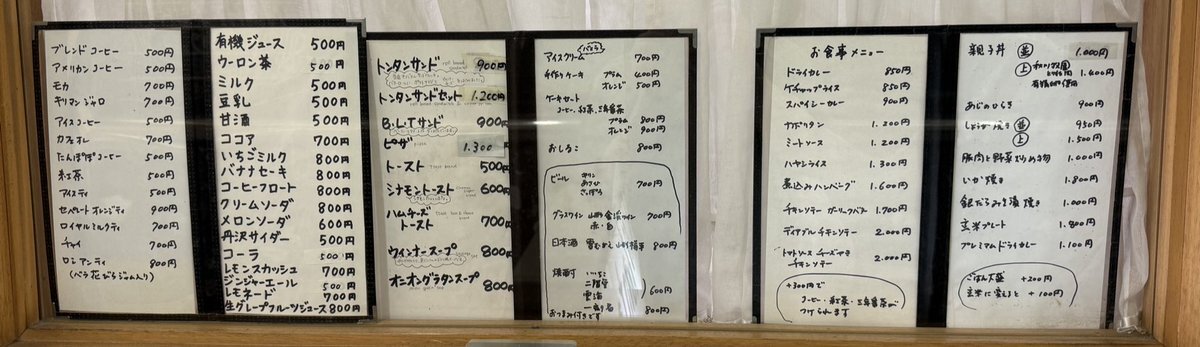 ブレンドコーヒー 500円
アメリカンコーヒー 500円
モカ 700円
キリマンジャロ 700円
アイスコーヒー 500円
カフェオレ 700円
たんぽぽコーヒー 500円
紅茶 500円
アイスティ 500円
セパレートオレンジティ 900円
ロイヤルミルクティ 700円
チャイ 700円
ロシアンティ 800円
(バラ花びらジャム入り)
有機ジュース 500円
ウーロン茶 500円
ミルク 500円
豆乳 500円
甘酒 500円
ココア 700円
いちごミルク 800円
バナナセーキ 800円
コーヒーフロート 800円
クリームソーダ 800円
メロンソーダ 600円
丹沢サイダー 500円
コーラ 500円
レモンスカッシュ 700円
ジンジャーエール 500円
レモネード 700円
生グレープフルーツジュース 800円
トンタンサンド 900円
トンタンサンドセット 1.200円
B.L.Tサンド 900円
ピザ 1.300円
トースト 500円
シナモントースト 600円
ハムチーズ
トースト 700円
ウインナースープ 800円
オニオングラタンスープ 800円
(バニラ)
アイスクリーム 700円
手作りケーキ プラム 400円
オレンジ 500円
ケーキセット
コーヒー、紅茶、三年番茶
プラム 800円
オレンジ 900円
おしるこ 800円
ビール キリン
あさひ 700円
さっぽろ
グラスワイン 山形 ワイン 700円
赤・白
日本酒 雪むかえ 800円
焼酎 いいちこ
二階堂 600円
雲海
800円
おつまみ付きです
お食事メニュー
ドライカレー 850円
ケチャップライス 850円
スパイシーカレー 900円
ナポリタン 1.200円
ミートソース 1.200円
ハヤシライス 1.300円
煮込みハンバーグ 1.600円
チキンソテー ガーリックバター 1.700円
ディアブルチキンソテー 2.000円
トマトソースチーズヤキ
チキンソテー 2.000円
+300円で
コーヒー・紅茶・三年番茶が
つけられます
親子丼 並 1.000円
上 1.400円
あじのひらき 900円
しょうが焼き 並 950円
上 1.500円
豚肉と野菜炒め物 1.000円
いか焼き 1.800円
銀だらみそ漬焼き 1.000円
玄米プレート 1.800円
プレミアムドライカレー 1.100円
ごはん大盛 +200円
玄米に変えると +100円